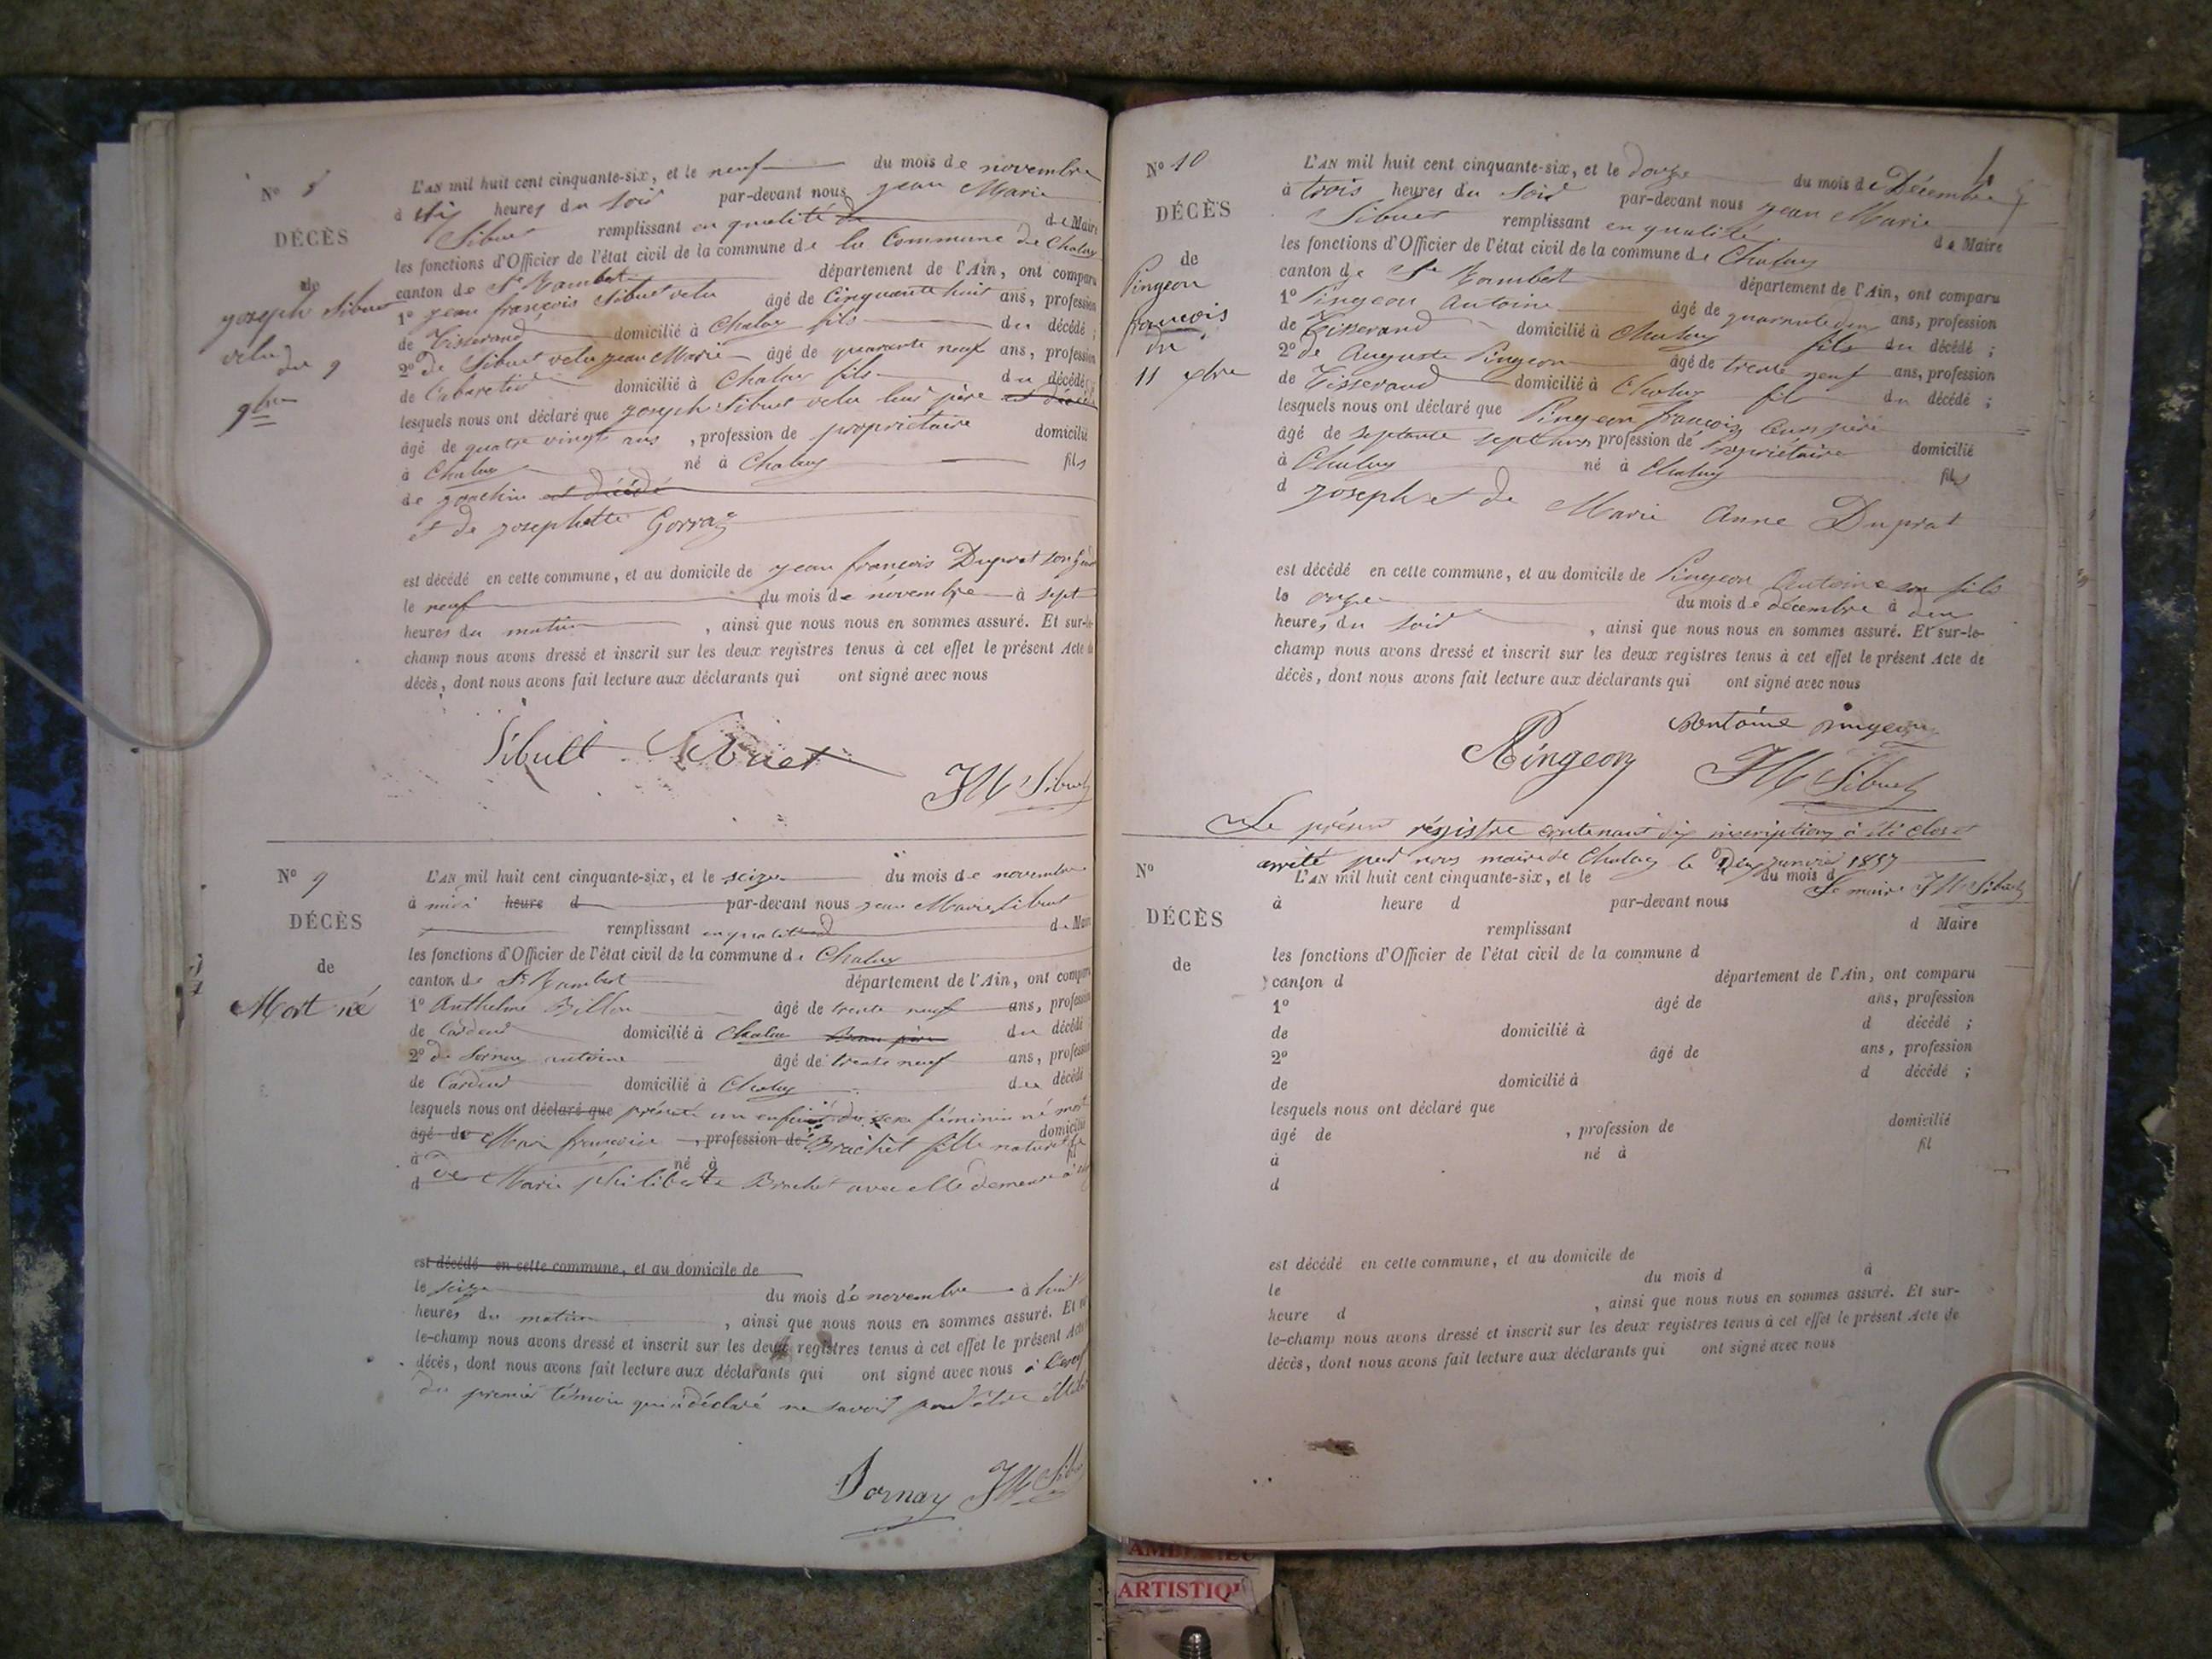 N° 8
DÉCÈS
de
joseph Sibuet
velu du 9
9bre
L'AN mil huit cent cinquante-six, et le neuf du mois de novembre
à dix heures du soir par-devant nous jean Marie
Sibuet remplissant en qualité de Maire
les fonctions d'Officier de l'état civil de la commune de la Commune de Chaley
canton de St Rambert département de l'Ain, ont comparu
1° jean françois Sibuet velu âgé de Cinquante huit ans, profession
de Tisserand domicilié à Chaley fils du décédé ;
2° de Sibuet velu jean Marie âgé de quarante neuf ans, profession
de Cabaretier domicilié à Chaley fils du décédé ;
lesquels nous ont déclaré que joseph Sibuet velu leur père est décédé
âgé de quatre vingts ans , profession de propriétaire domicilié
à Chaley né à Chaley fils
de joachin est décédé
et de josephette Gorraz
est décédé en cette commune, et au domicile de jean françois Duprat son
le neuf du mois de novembre à sept
heures du matin , ainsi que nous nous en sommes assuré. Et sur-le-
champ nous avons dressé et inscrit sur les deux registres tenus à cet effet le présent Acte de
décès, dont nous avons fait lecture aux déclarants qui ont signé avec nous
Sibuet Sibuet
JM Sibuet
N° 9
DÉCÈS
de
Mort né
L'AN mil huit cent cinquante-six, et le seize du mois de novembre
à midi heure d par-devant nous jean Marie Sibuet
remplissant en qualité de Maire
les fonctions d'Officier de l'état civil de la commune de Chaley
canton de St Rambert département de l'Ain, ont comparu
1° Anthelme Billon âgé de trente neuf ans, profession
de Cardeur domicilié à Chaley du décédé
2° de Sornay antoine âgé de trente neuf ans, profession
de Cardeur domicilié à Chaley du décédé
lesquels nous ont déclaré que présenté un enfant du sexe féminin né mort
âgé de Marie françoise , profession de Brachet fille naturelle domicilié
à né à fil
d de Marie philiberte Brachet avec elle demeure à
est décédé en cette commune, et au domicile de
le seize du mois de novembre à huit
heures du matin , ainsi que nous nous en sommes assuré. Et sur-
le-champ nous avons dressé et inscrit sur les deux registres tenus à cet effet le présent Acte
décès, dont nous avons fait lecture aux déclarants qui ont signé avec nous à
du premier témoin qui a déclaré ne savoir pour
Sornay JM Sibuet
N° 10
DÉCÈS
de
Pingeon
françois
du
11 xbre
L'AN mil huit cent cinquante-six, et le douze du mois de Décembre
à trois heures du soir par-devant nous jean Marie
Sibuet remplissant en qualité de Maire
les fonctions d'Officier de l'état civil de la commune de Chaley
canton de St Rambert département de l'Ain, ont comparu
1° Pingeon Antoine âgé de quarante deux ans, profession
de Tisserand domicilié à Chaley fils du décédé ;
2° de Auguste Pingeon âgé de trente neuf ans, profession
de Tisserand domicilié à Chaley fils du décédé ;
lesquels nous ont déclaré que Pingeon françois leur père
âgé de septante sept ans profession de Propriétaire domicilié
à Chaley né à Chaley fils
d joseph et de Marie Anne Duprat
est décédé en cette commune, et au domicile de Pingeon Antoine son fils
le onze du mois de décembre à deux
heures du soir , ainsi que nous nous en sommes assuré. Et sur-le-
champ nous avons dressé et inscrit sur les deux registres tenus à cet effet le présent Acte de
décès, dont nous avons fait lecture aux déclarants qui ont signé avec nous
Antoine pingeon
Pingeon JM Sibuet
Le présent régistre contenant dix inscriptions à été clos et
arrêté par nous maire de Chaley le janvier 1857
Le maire JM Sibuet
N°
DÉCÈS
de
L'AN mil huit cent cinquante-six, et le du mois d
à heure d par-devant nous
remplissant d Maire
les fonctions d'Officier de l'état civil de la commune d
canton d département de l'Ain, ont comparu
1° âgé de ans, profession
de domicilié à d décédé ;
2° âgé de ans, profession
de domicilié à d décédé ;
lesquels nous ont déclaré que
âgé de , profession de domicilié
à né à fil
d
est décédé en cette commune, et au domicile de
le du mois d à
heure d , ainsi que nous nous en sommes assuré. Et sur-
le-champ nous avons dressé et inscrit sur les deux registres tenus à cet effet le présent Acte de
décès, dont nous avons fait lecture aux déclarants qui ont signé avec nous
ARTISTIQ